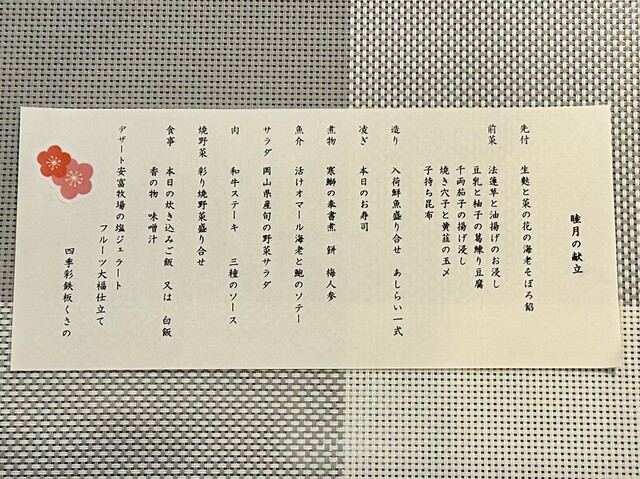 睦月の献立
先付　生麩と菜の花の海老そぼろ餡
前菜　法蓮草と油揚げのお浸し
豆乳と柚子の葛練り豆腐
千両茄子の揚げ浸し
焼き穴子と黄韮の玉〆
子持ち昆布
造り　入荷鮮魚盛り合せ　あしらい一式
凌ぎ　本日のお寿司
煮物　寒鰤の奉書煮　餅　梅人参
魚介　活けオマール海老と鮑のソテー
サラダ　岡山県産旬の野菜サラダ
肉　和牛ステーキ　三種のソース
焼野菜　彩り焼野菜盛り合せ
食事　本日の炊き込みご飯　又は　白飯
香の物　味噌汁
デザート　安富牧場の塩ジェラート
フルーツ大福仕立て
四季彩鉄板くさの